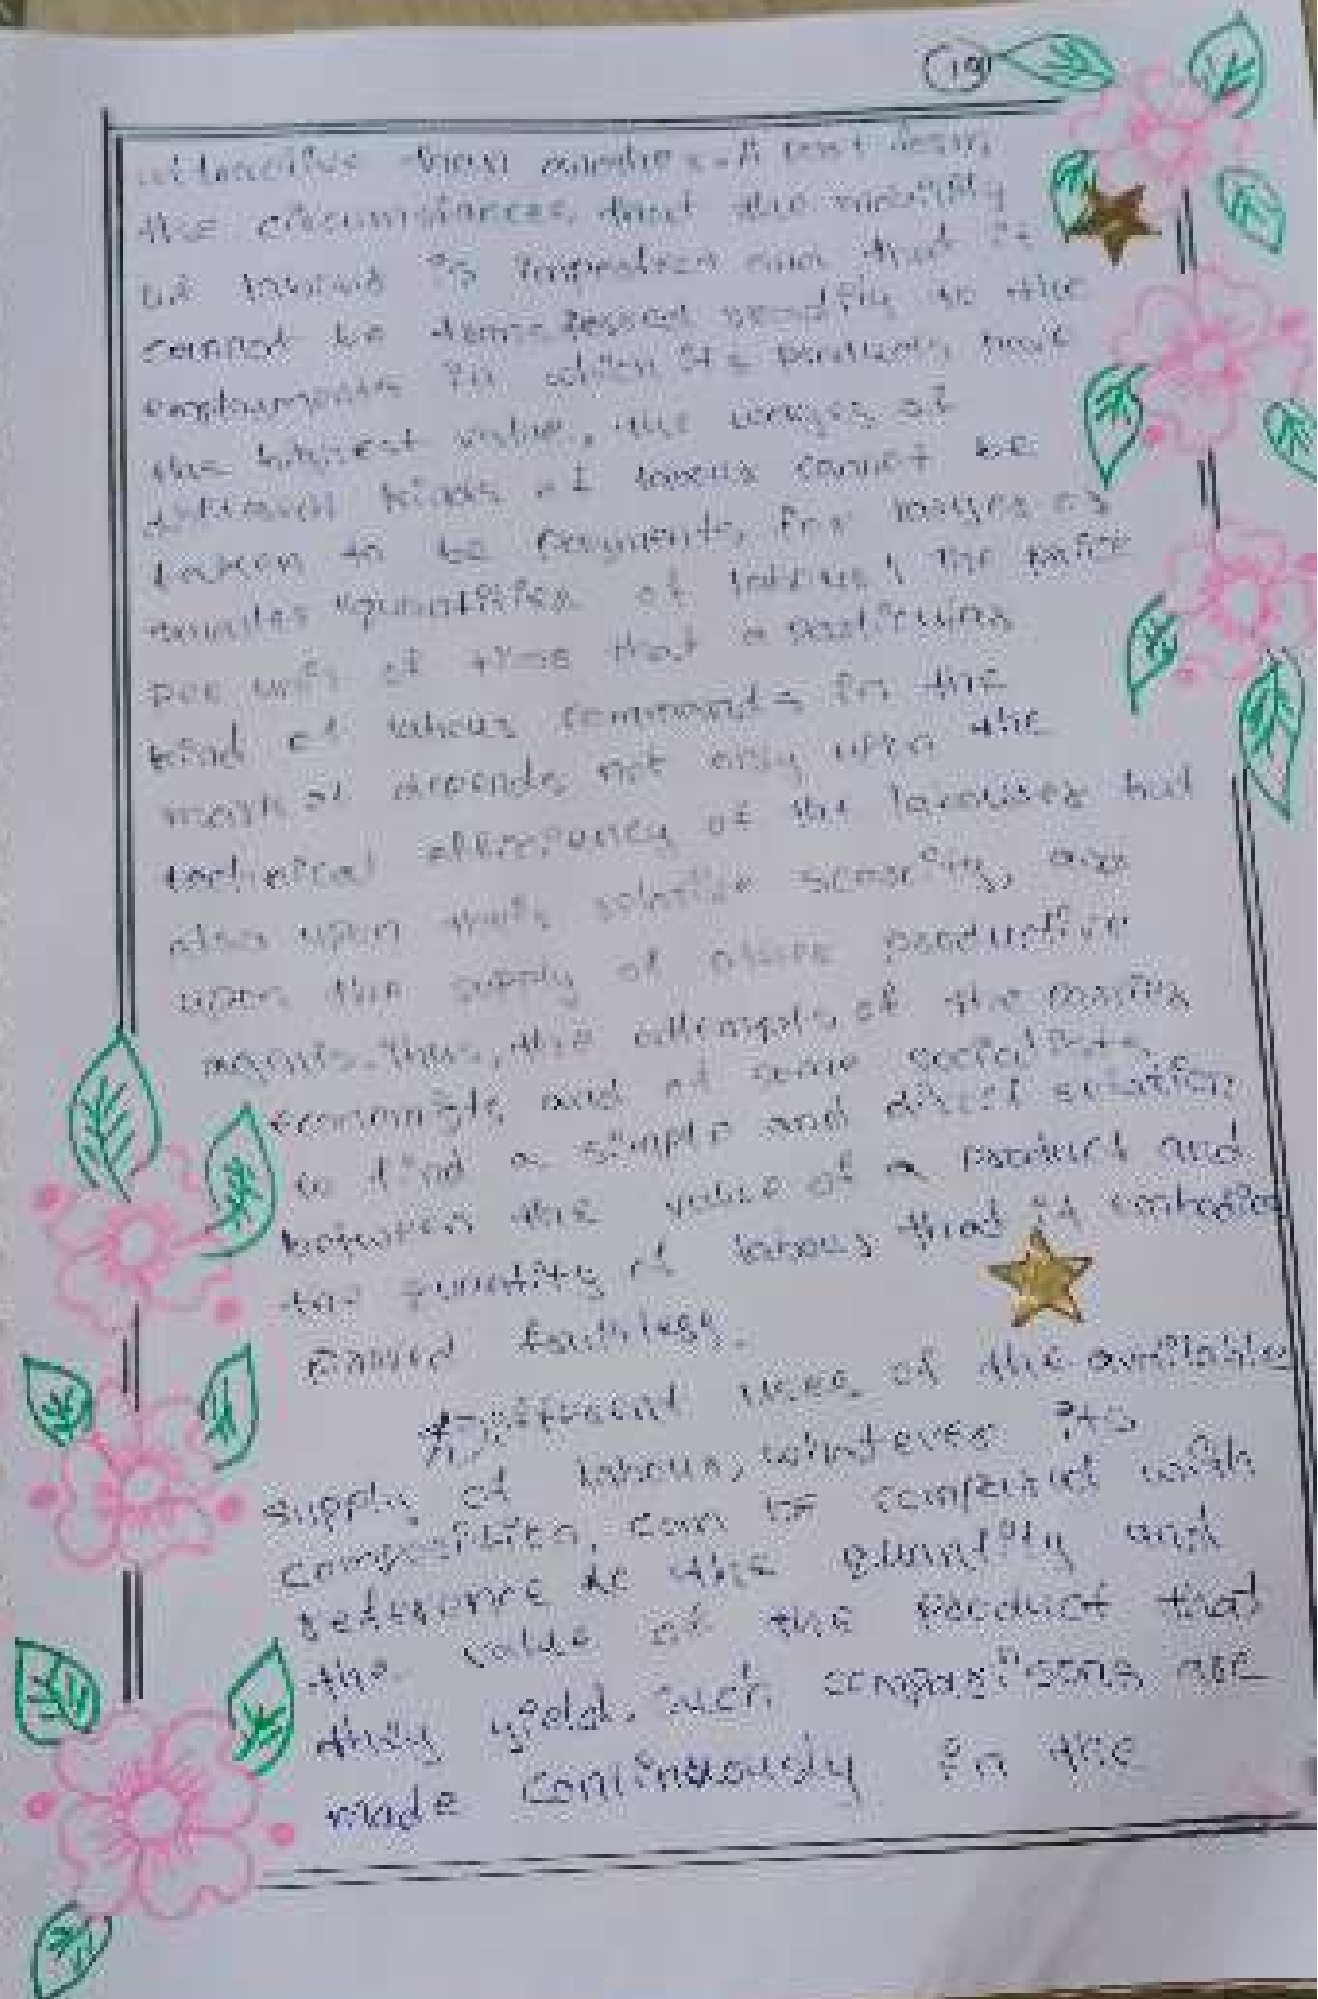 19
attractive than others. Apart from
the circumstances that the mobility
of labour is imperfect and that it
cannot be transferred readily to the
employments in which its products have
the highest value, the wages of
different kinds of labour cannot be
taken to be payments for larger or
smaller quantities of labour; the price
per unit of time that a particular
kind of labour commands in the
market depends not only upon the
technical efficiency of the labourer but
also upon their relative scarcity, and
upon the supply of other productive
agents. Thus, the attempts of the earlier
economists and of some socialists
to find a simple and direct relation
between the value of a product and
the quantity of labour that it embodies
proved fruitless.
Different uses of the available
supply of labour, whatever its
composition, can be compared with
reference to the quantity and
the value of the product that
they yield. such comparisons are
made continuously in the